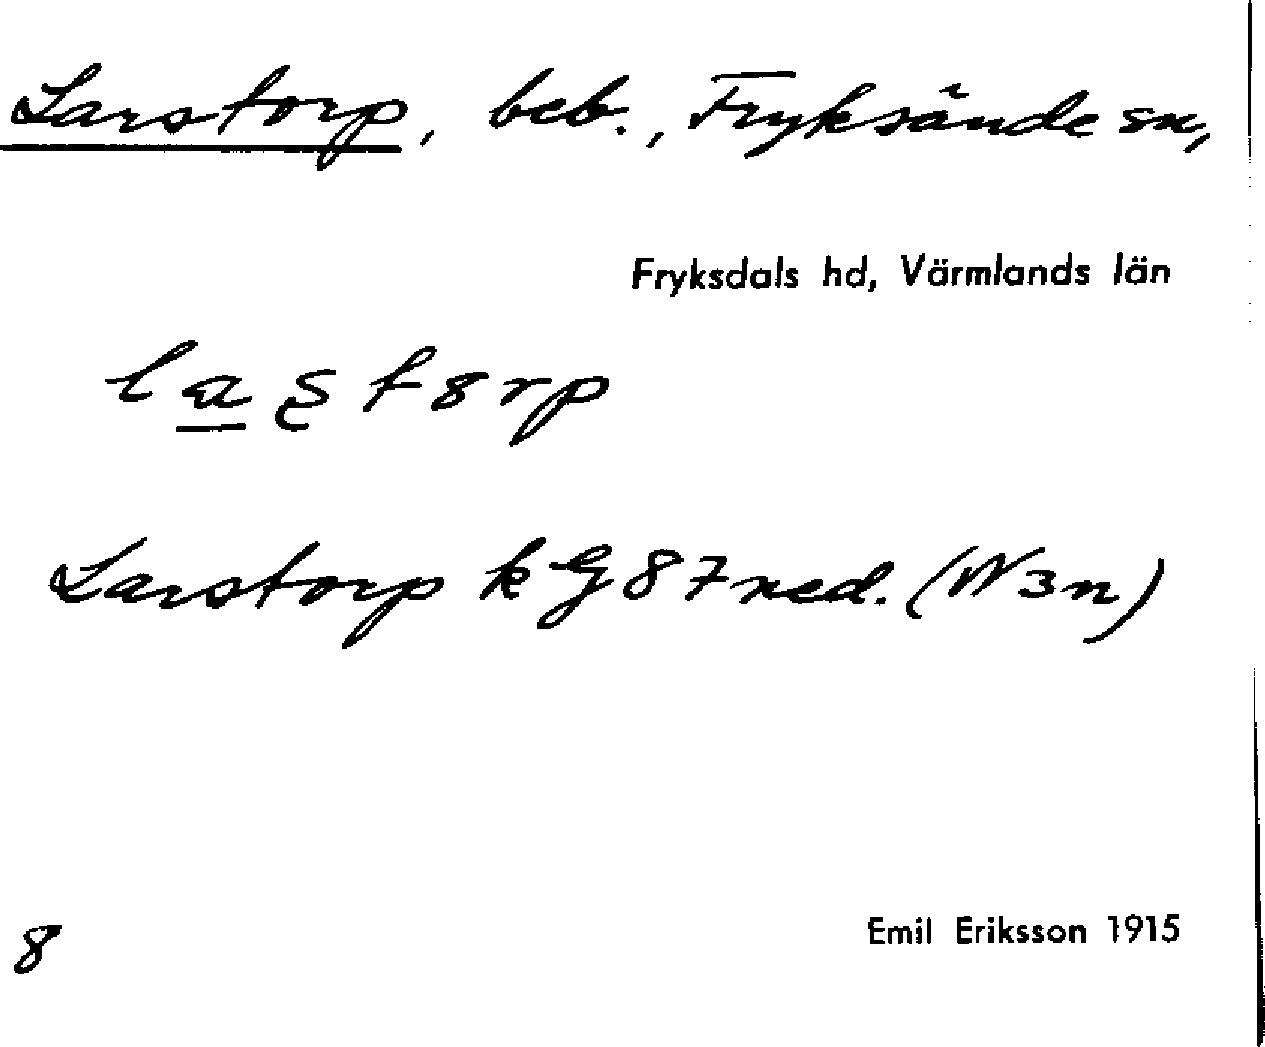 Larstorp, beb., Fryksände sn,
Fryksdals hd, Värmlands län
la̲ʂt8rp
Larstorp k G 87 ned. (W3n)
8
Emil Eriksson 1915